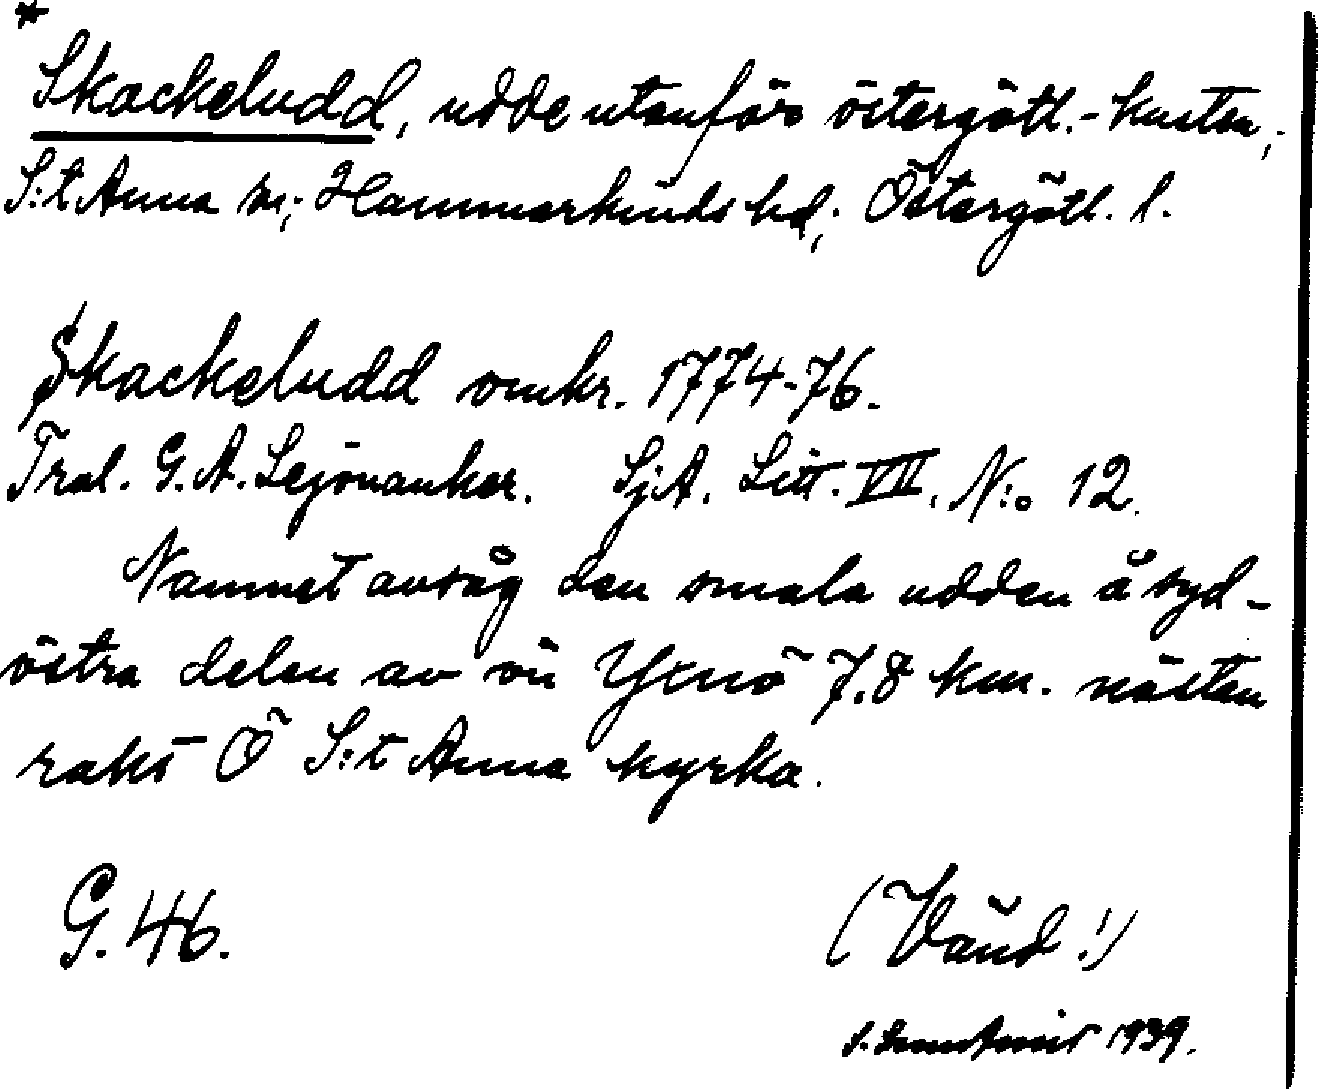 *
Skackeludd, udde utanför östergötl.-kusten,
S:t Anna sn; Hammarkinds hd; Östergötl. l.
Skackeludd omkr. 1774-76.
Tral. G. A. Lejonanker. SjA. Litt. VII. N:o 12.
Namnet avsåg den smala udden å syd-
östra delen av ön Yxnö 7.8 km. nästan
rakt Ö S:t Anna kyrka.
G. 46.
(Vänd!)
S. 1939.